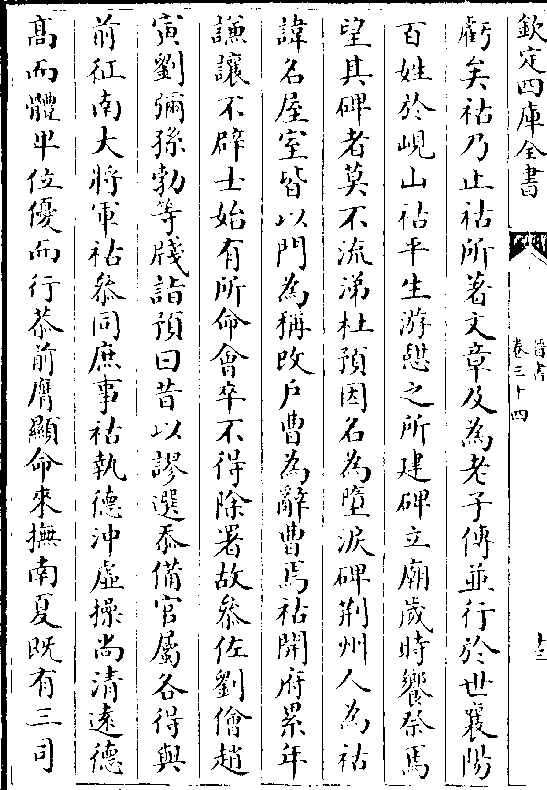 欽定四庫全書
晉書
卷三十四
十三
虧矣祜乃止祜所著文章及為老子傳並行於世襄陽
百姓於峴山祜平生游憇之所建碑立廟歲時饗祭焉
望其碑者莫不流涕杜預因名為墮淚碑荆州人為祜
諱名屋室皆以門為稱改戶曹為辭曹焉祜開府累年
謙讓不辟士始有所命會卒不得除署故叅佐劉儈趙
寅劉彌孫勃等牋詣預曰昔以謬選忝備官屬各得與
前征南大將軍祜叅同庶事祜執德沖虛操尚清遠德
髙而體卑位優而行恭前膺顯命來撫南夏既有三司